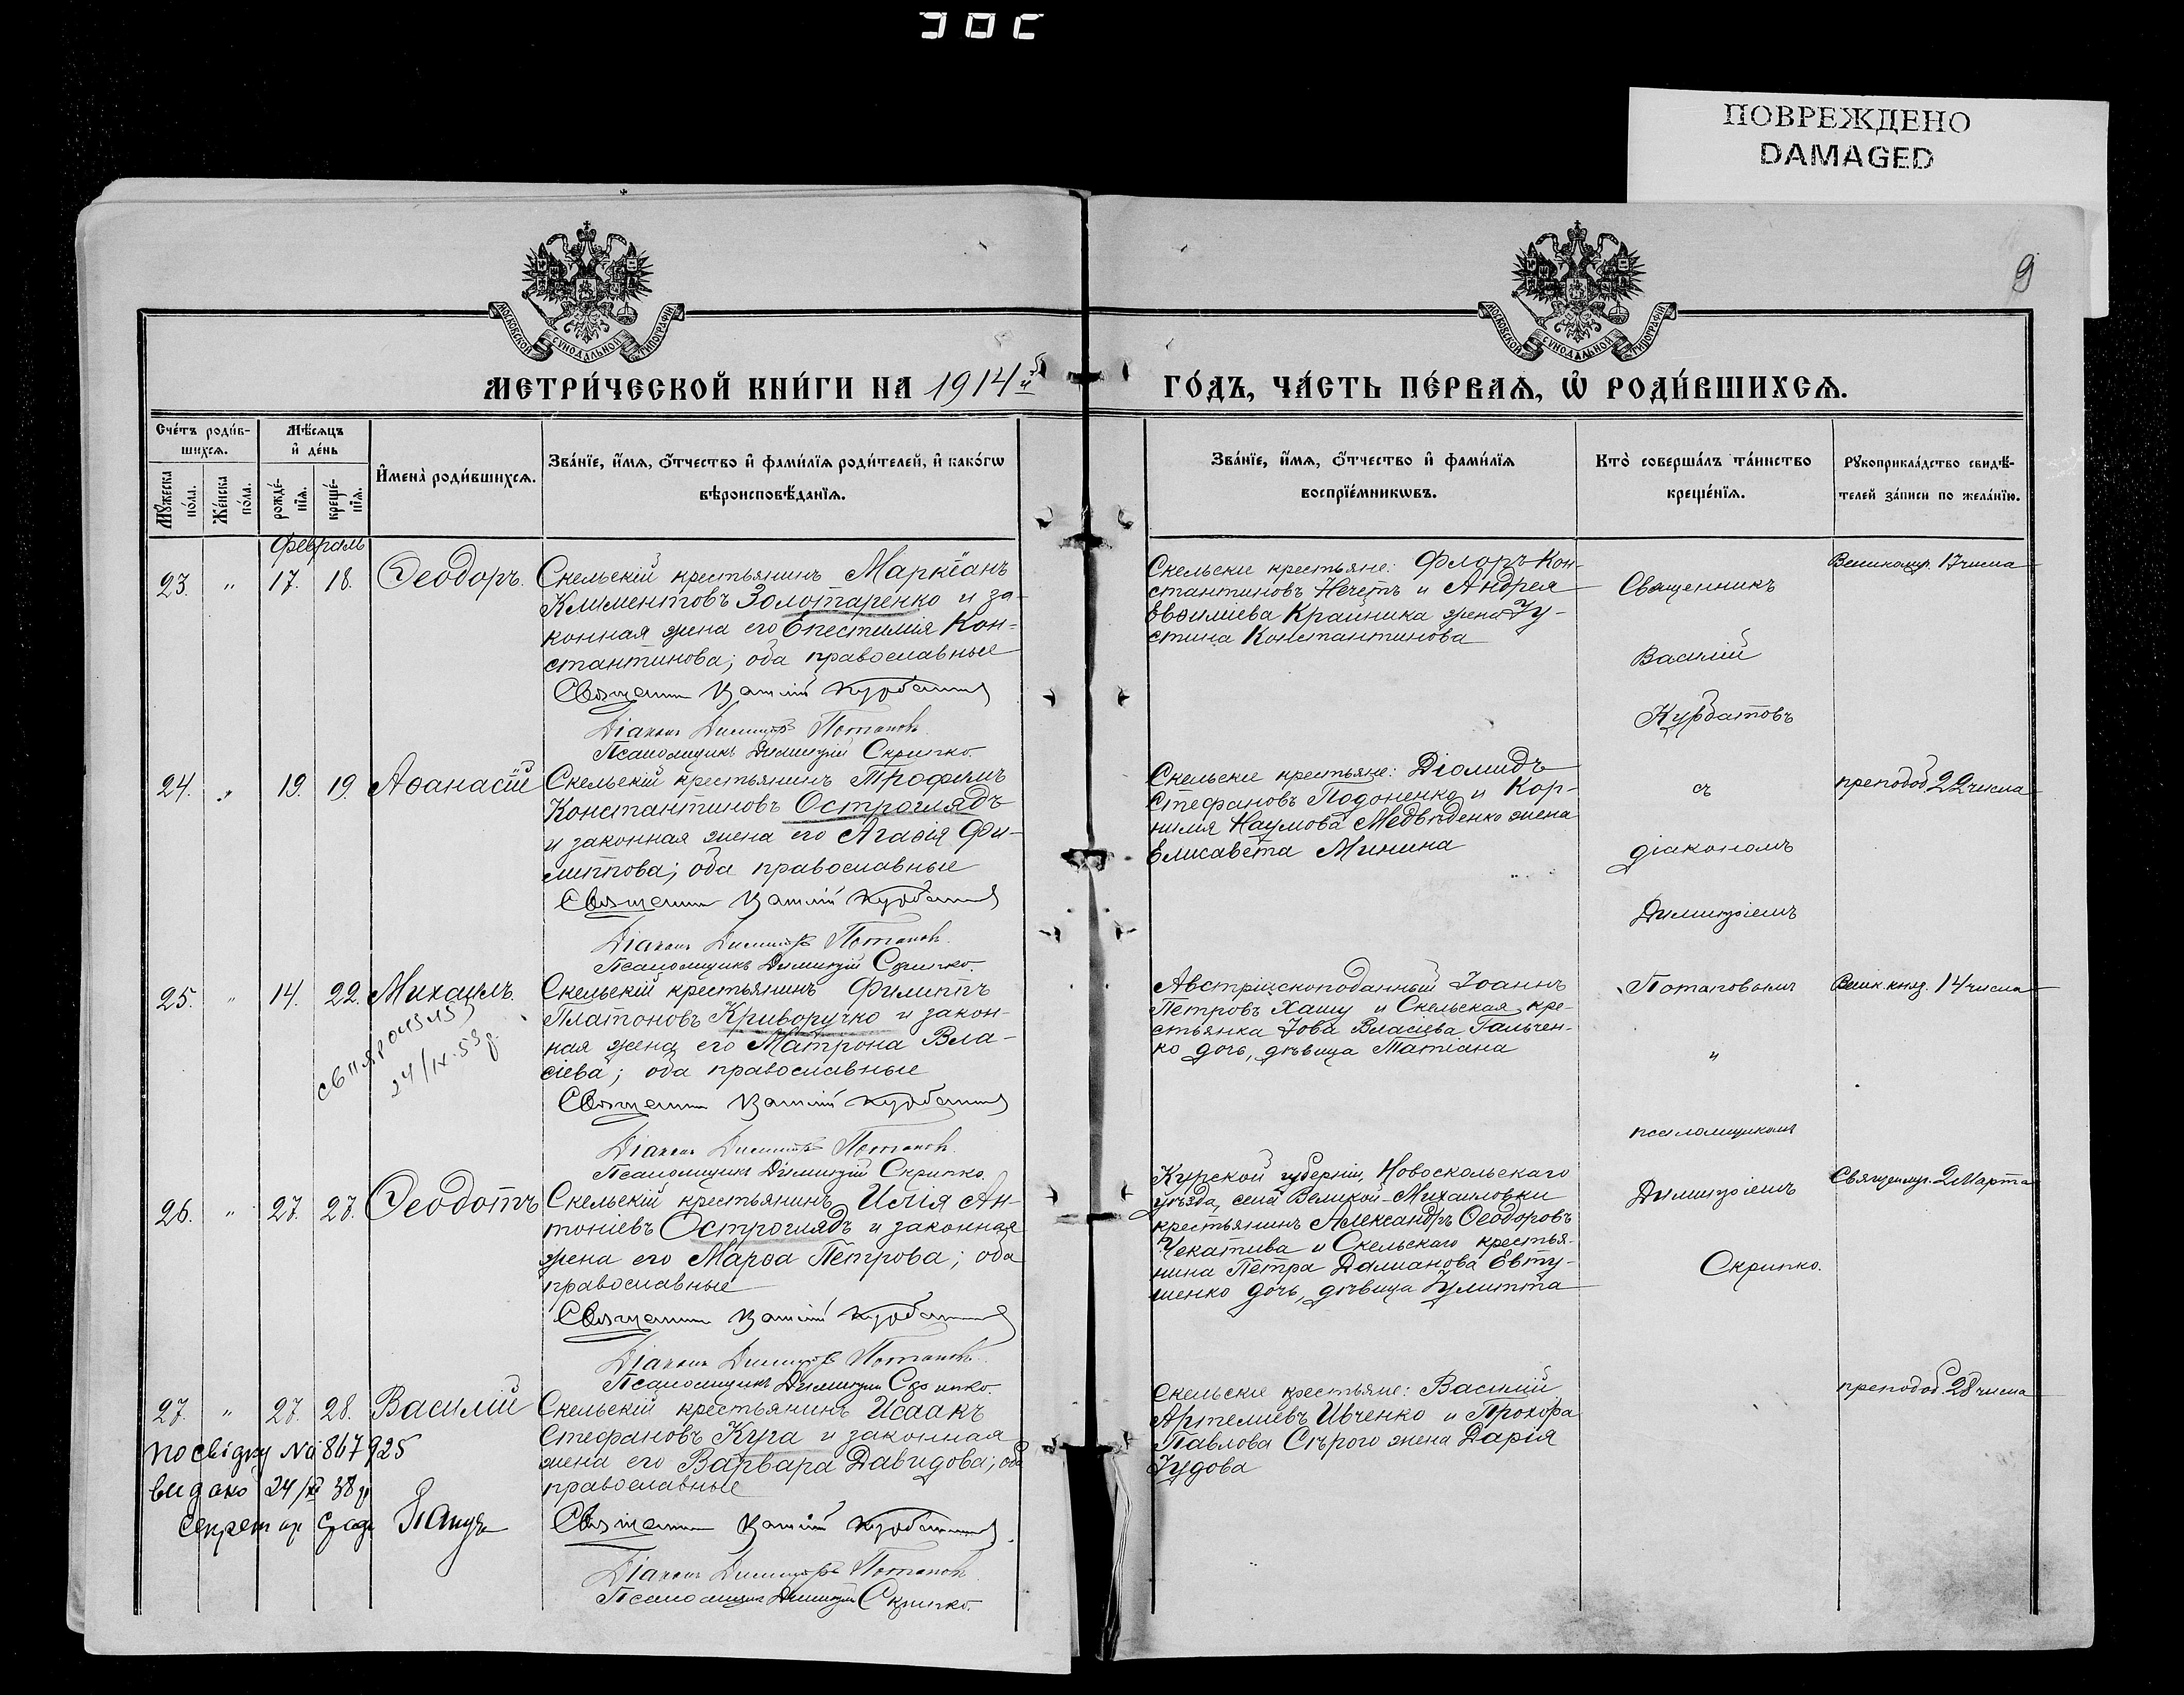 ПОВРЕЖДЕНО
DAMAGED
9
МОСКОВСКОЙ СУНОДАЛЬНОЙ ТИПОГРАФІИ
МОСКОВСКОЙ СУНОДАЛЬНОЙ ТИПОГРАФІИ
МЕТРИ́ЧЕСКОЙ КНИ́ГИ НА 1914й
ГО́ДЪ, ЧА́СТЬ ПЕ́РВАѦ, Ѡ҆ РОДИ́ВШИХСѦ.
Сче́тъ роди́в-
шихсѧ.
Мѣ́сѧцъ
и҆ де́нь
Мꙋ́жеска
по́ла.
Же́нска
по́ла.
рожде́-
нїѧ.
креще́-
нїѧ.
И҆мена̀ роди́вшихсѧ.
Зва́нїе, и҆́мѧ, ѻ҆́тчество и҆ фами́лїѧ роди́телей, и҆ како́гѡ
вѣроисповѣ́данїѧ.
Зва́нїе, и҆́мѧ, ѻ҆́тчество и҆ фами́лїѧ
воспрїе́мникѡвъ.
Кто̀ соверша́лъ та́инство
креще́нїѧ.
Рꙋкоприкла́дство свидѣ́-
телей за́писи по жела́нїю.
Февраль
23. " 17. 18. Ѳеодоръ.
Скельскій крестьянинъ Маркіанъ
Климентовъ Золотаренко и за-
конная жена его Епестимія Кон-
стантинова; оба православные
Священ Василій Курбатовъ
Діаконъ Димитрій Потаповъ
Псаломщикъ Димитрій Скрипко.
Скельскіе крестьяне: Флоръ Кон-
стантиновъ Нечетъ и Андрея
Евѳиміева Крайника жена Іу-
стина Константинова
Великомуч. 17 числа
24. " 19. 19. Аѳанасій
Скельскій крестьянинъ Трофимъ
Константиновъ Остроглядъ
и законная жена его Агаѳія Фи-
липпова; оба православные
Священ Василій Курбатовъ
Діаконъ Димитрій Потаповъ
Псаломщикъ Димитрій Скрипко.
Скельскіе крестьяне: Діомидъ
Стефановъ Подоненко и Кор-
нилія Наумова Медвѣденко жена
Елисавета Минина
преподоб. 22 числа
25. " 14. 22. Михаилъ.
24/IX.53 р.
Скельскій крестьянинъ Филиппъ
Платоновъ Криворучко и закон-
ная жена его Матрона Вла-
сіева; оба православные
Священ Василій Курбатовъ
Діаконъ Димитрій Потаповъ
Псаломщикъ Димитрій Скрипко.
Австрійскоподанный Іоаннъ
Петровъ Хашу и Скельская кре-
стьянка Іова Власіева Гальчен-
ко дочь, дѣвица Татіана
Велик. княз. 14 числа
26. " 27. 27. Ѳеодотъ
Скельскій крестьянинъ Илія Ан-
тоніевъ Остроглядъ и законная
жена его Марѳа Петрова; оба
православные
Священ Василій Курбатовъ
Діаконъ Димитрій Потаповъ
Псаломщикъ Димитрій Скрипко.
Курской губерніи, Новоскольскаго
уѣзда, села Великой-Михайловки
крестьянинъ Александръ Ѳеодоровъ
Чекатива и Скельскаго крестья-
нина Петра Даміанова Евту-
шенко дочь, дѣвица Іулитта
Священмуч. 2 Марта
27. " 27. 28. Василій
Посвідку № 867925
видано 24/XI 38 р
Секретар
Скельскій крестьянинъ Исаакъ
Стефановъ Куга и законная
жена его Варвара Давидова; оба
православные
Священ Василій Курбатовъ
Діаконъ Димитрій Потаповъ
Псаломщикъ Димитрій Скрипко.
Скельскіе крестьяне: Василій
Артеміевъ Ивченко и Прохора
Павлова Сѣрого жена Дарія
Іудова
преподоб. 28 числа
Священникъ
Василій
Курбатовъ
съ
діакономъ
Димитріемъ
Потаповымъ
и
псаломщикомъ
Димитріемъ
Скрипко.